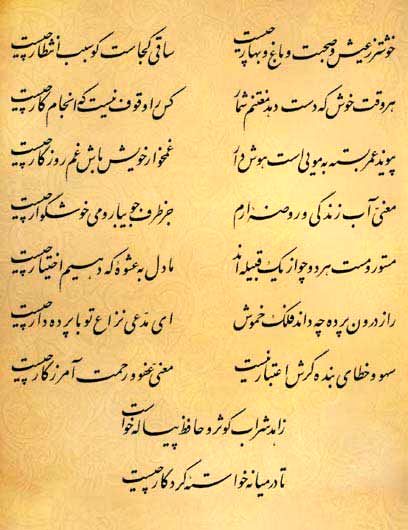 خوشتر ز عیش و صحبت و باغ و بهار چیست ساقی کجاست گو سبب انتظار چیست
هر وقت خوش که دست دهد مغتنم شمار کس را وقوف نیست که انجام کار چیست
پیوند عمر بسته به مویی است هوش دار غمخوار خویش باش غم روزگار چیست
معنی آب زندگی و روضه ارم جز طرف جویبار و می خوشگوار چیست
مستور و مست هر دو چو از یک قبیله اند ما دل به عشوه که دهیم اختیار چیست
راز درون پرده چه داند فلک خموش ای مدّعی نزاع تو با پرده دار چیست
سهو و خطای بنده گرش اعتبار نیست معنی عفو و رحمت آمرزگار چیست
زاهد شراب کوثر و حافظ پیاله خواست
تا در میانه خواسته کردگار چیست